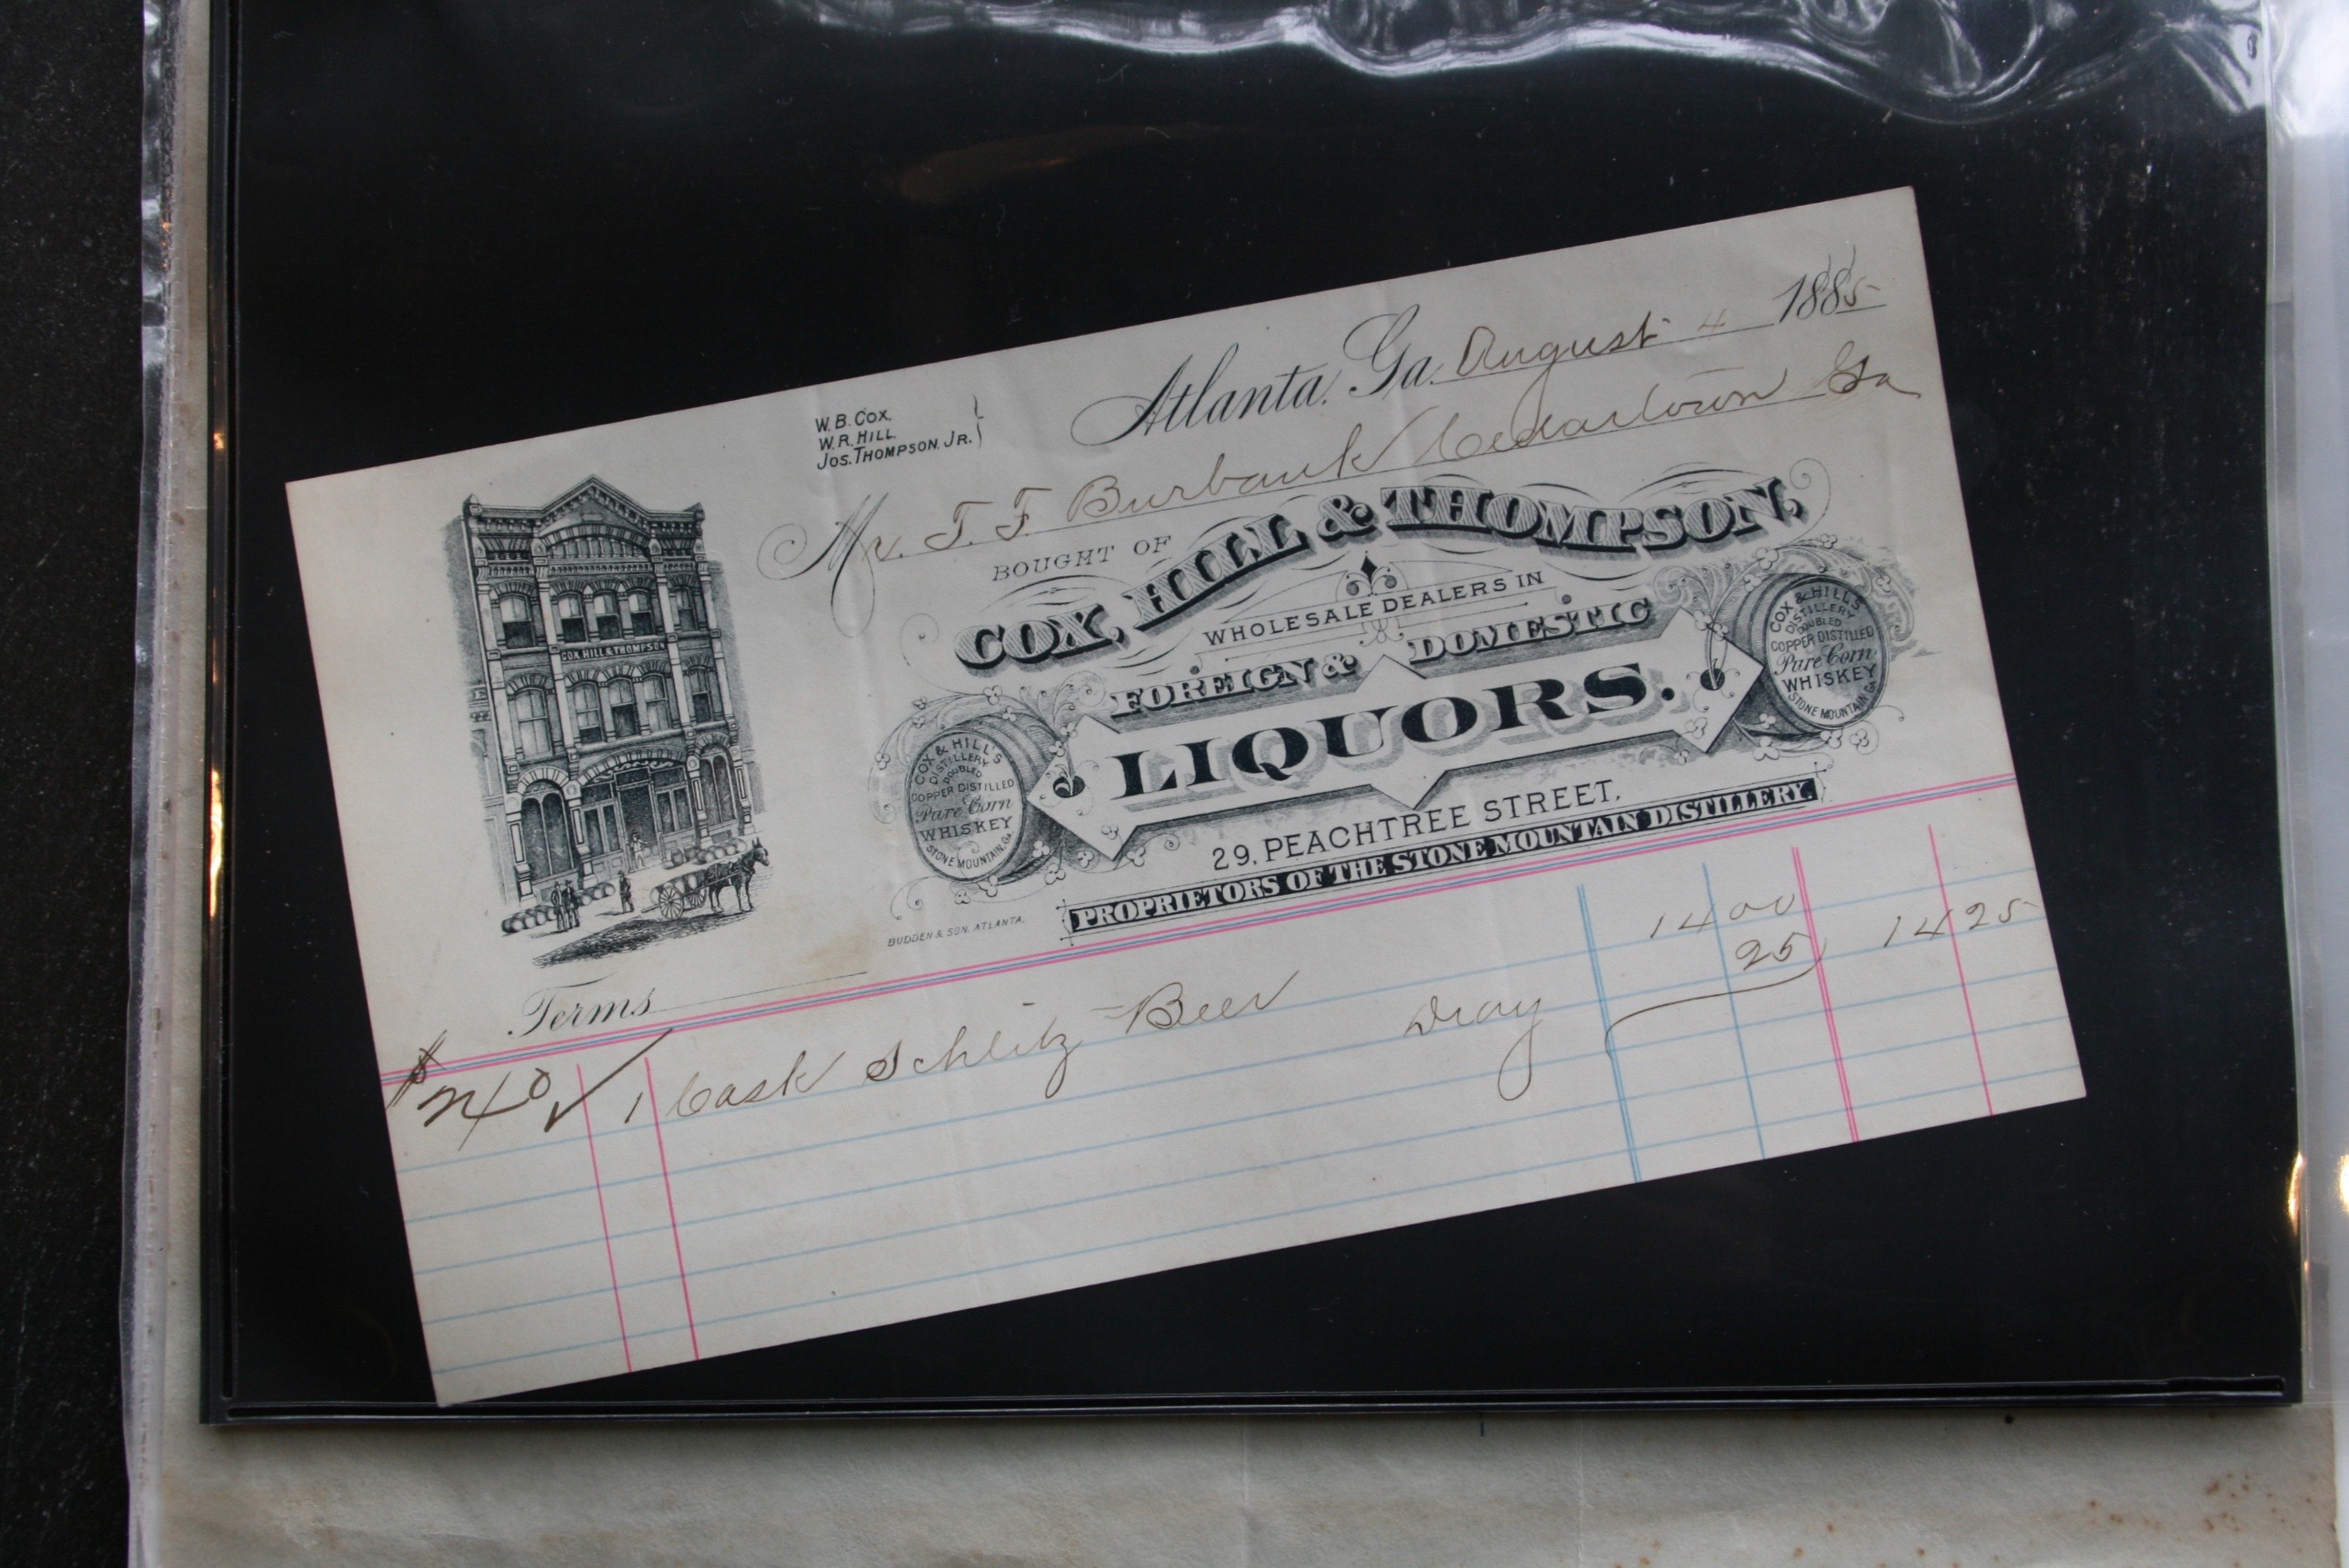 W. B. COX.
W. R. HILL.
JOS. THOMPSON. JR.
Atlanta, Ga. August 4 1885
Mr. T. F. Burbank Cedartown Ga
BOUGHT OF
COX, HILL & THOMPSON,
WHOLESALE DEALERS IN
FOREIGN & DOMESTIC
LIQUORS.
29, PEACHTREE STREET,
PROPRIETORS OF THE STONE MOUNTAIN DISTILLERY.
COX, HILL & THOMPSON
COX & HILL'S
DISTILLERY
DOUBLED
COPPER DISTILLED
Pure Corn
WHISKEY
STONE MOUNTAIN, GA
COX & HILL'S
DISTILLERY
DOUBLED
COPPER DISTILLED
Pure Corn
WHISKEY
STONE MOUNTAIN, GA
BUDDEN & SON. ATLANTA.
Terms
1 Cask Schlitz Beer 14 00
Dray 25 14 25